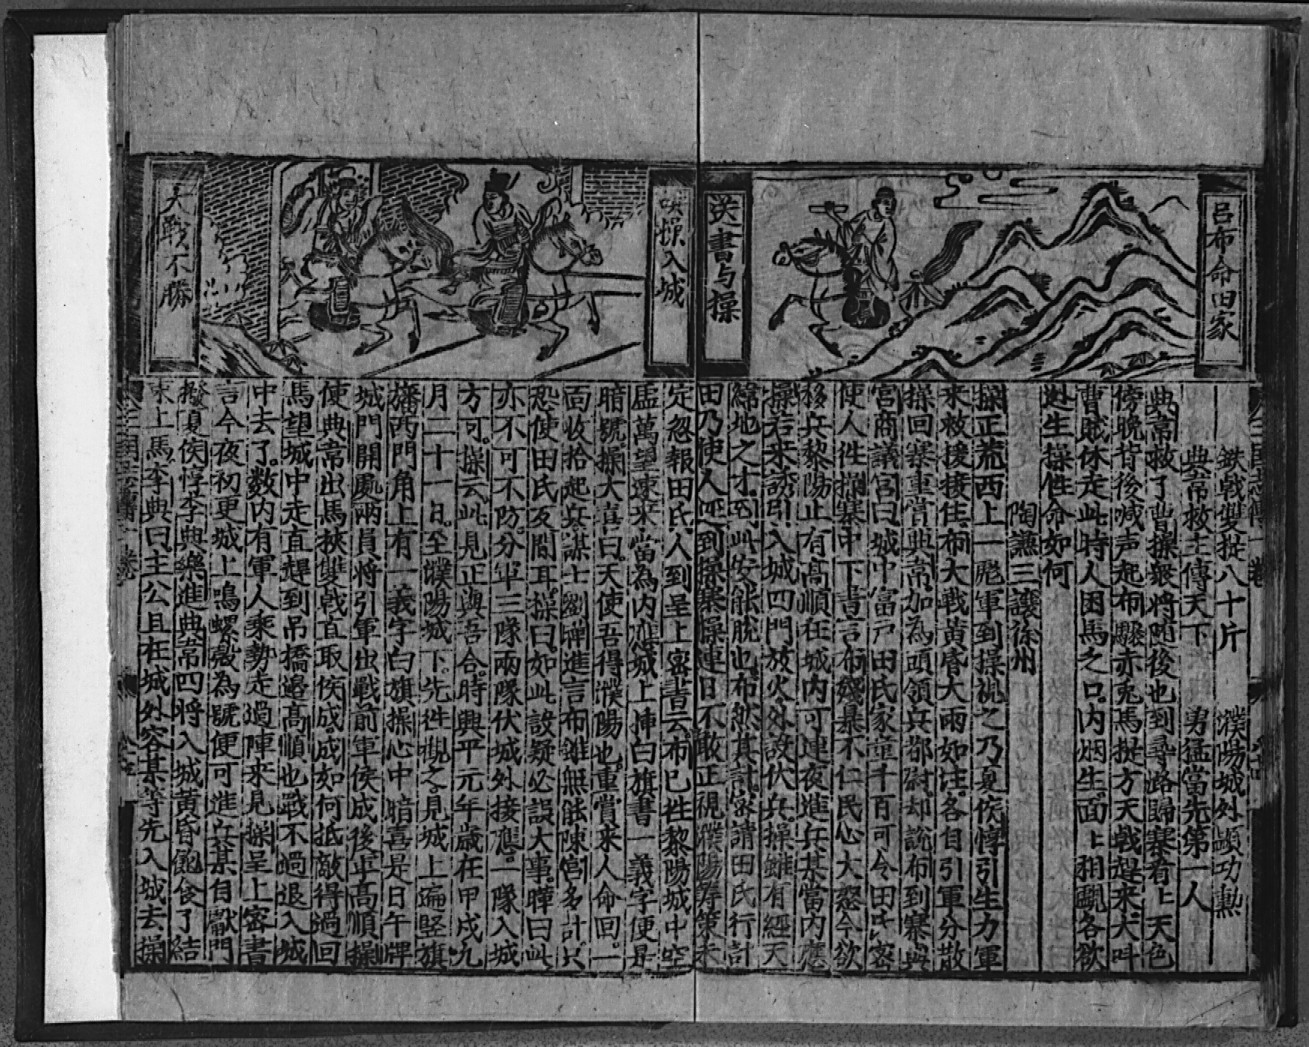 呂布命田家
送書与操
鉄戟雙提八十斤　濮陽城外顕功勲
典韋救主傳天下　勇猛當先第一人
典韋救了曹操衆將随後也到尋路歸寨看上天色
傍晩背後喊声起布驟赤兎馬提方天戟趕来大叫
曹賊休走此時人困馬乏口内烟生面上相覷各欲
逃生操性命如何
陶謙三讓徐州
操正荒西上一彪軍到操視之乃夏侯惇引生力軍
来救援接住布大戰黄昏大雨如注各自引軍分散
操回寨重賞典韋加為頭領兵都尉却說布到寨與
宮商議宮曰城中富戸田氏家童千百可令田氏密
使人徃操寨中下書言布殘暴不仁民心大怒今欲
移兵黎陽止有高順在城内可連夜進兵某當内應
操若来誘引入城四門放火外設伏兵操雖有經天
緯地之才到此安能脫也布然其計密請田氏行計
田乃使人逕到操寨操連日不敢正視濮陽籌策未
定忽報田氏人到呈上密書云布已徃黎陽城中空
虚萬望速来當為内應城上挿白旗書一義字便是
暗號操大喜曰天使吾得濮陽也重賞来人命回一
面收拾起兵謀士劉曄進言布雖無能陳宮多計只
恐使田氏反間耳操曰如此設疑必誤大事曄曰此
亦不可不防分軍三隊兩隊伏城外接應一隊入城
方可操云此見正與吾合時興平元年歳在甲戌九
月二十一日至濮陽城下先徃覷之見城上遍竪旗
旛西門角上有一義字白旗操心中暗喜是日午牌
城門開處兩員將引軍出戰前軍侯成後軍高順操
使典韋出馬挾雙戟直取侯成成如何抵敵得過回
馬望城中走直趕到吊橋邉高順也戰不過退入城
中去了數内有軍人乘勢走過陣来見操呈上密書
言今夜初更城上鳴螺殻為號便可進兵某自獻門
撥夏侯惇李典樂進典韋四將入城黄昏飽食了結
束上馬李典曰主公且在城外容某等先入城去操
操入城
大戰不勝